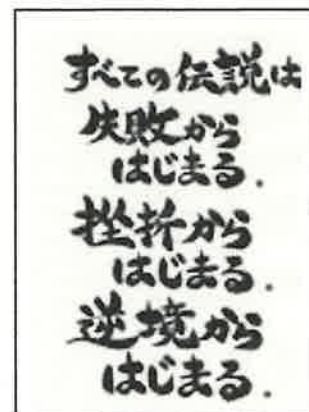 すべての伝説は
失敗から
はじまる.
挫折から
はじまる.
逆境から
はじまる.